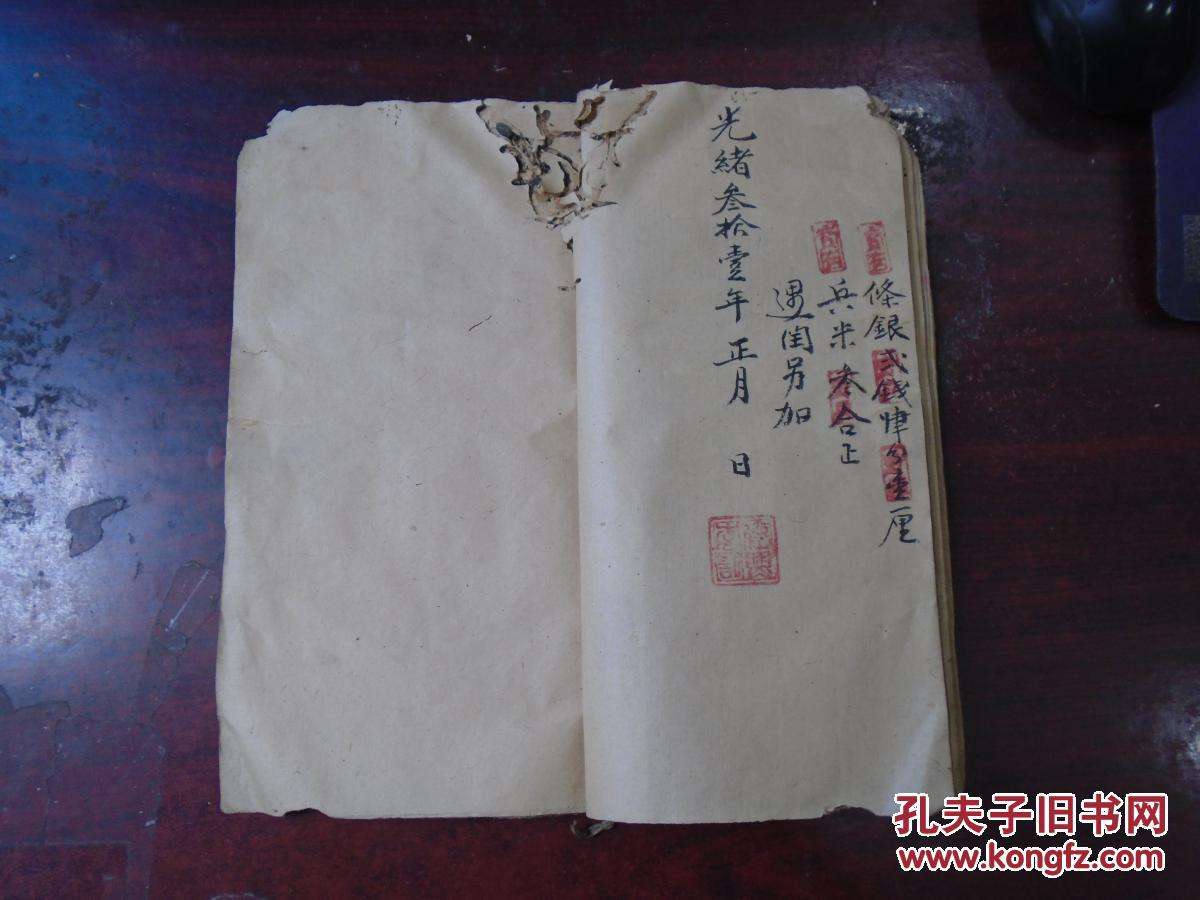 條銀弍錢肆分壹厘
兵米叁合正
遇閏另加
光緒叁拾壹年正月 日
孔夫子旧书网
www.kongfz.com